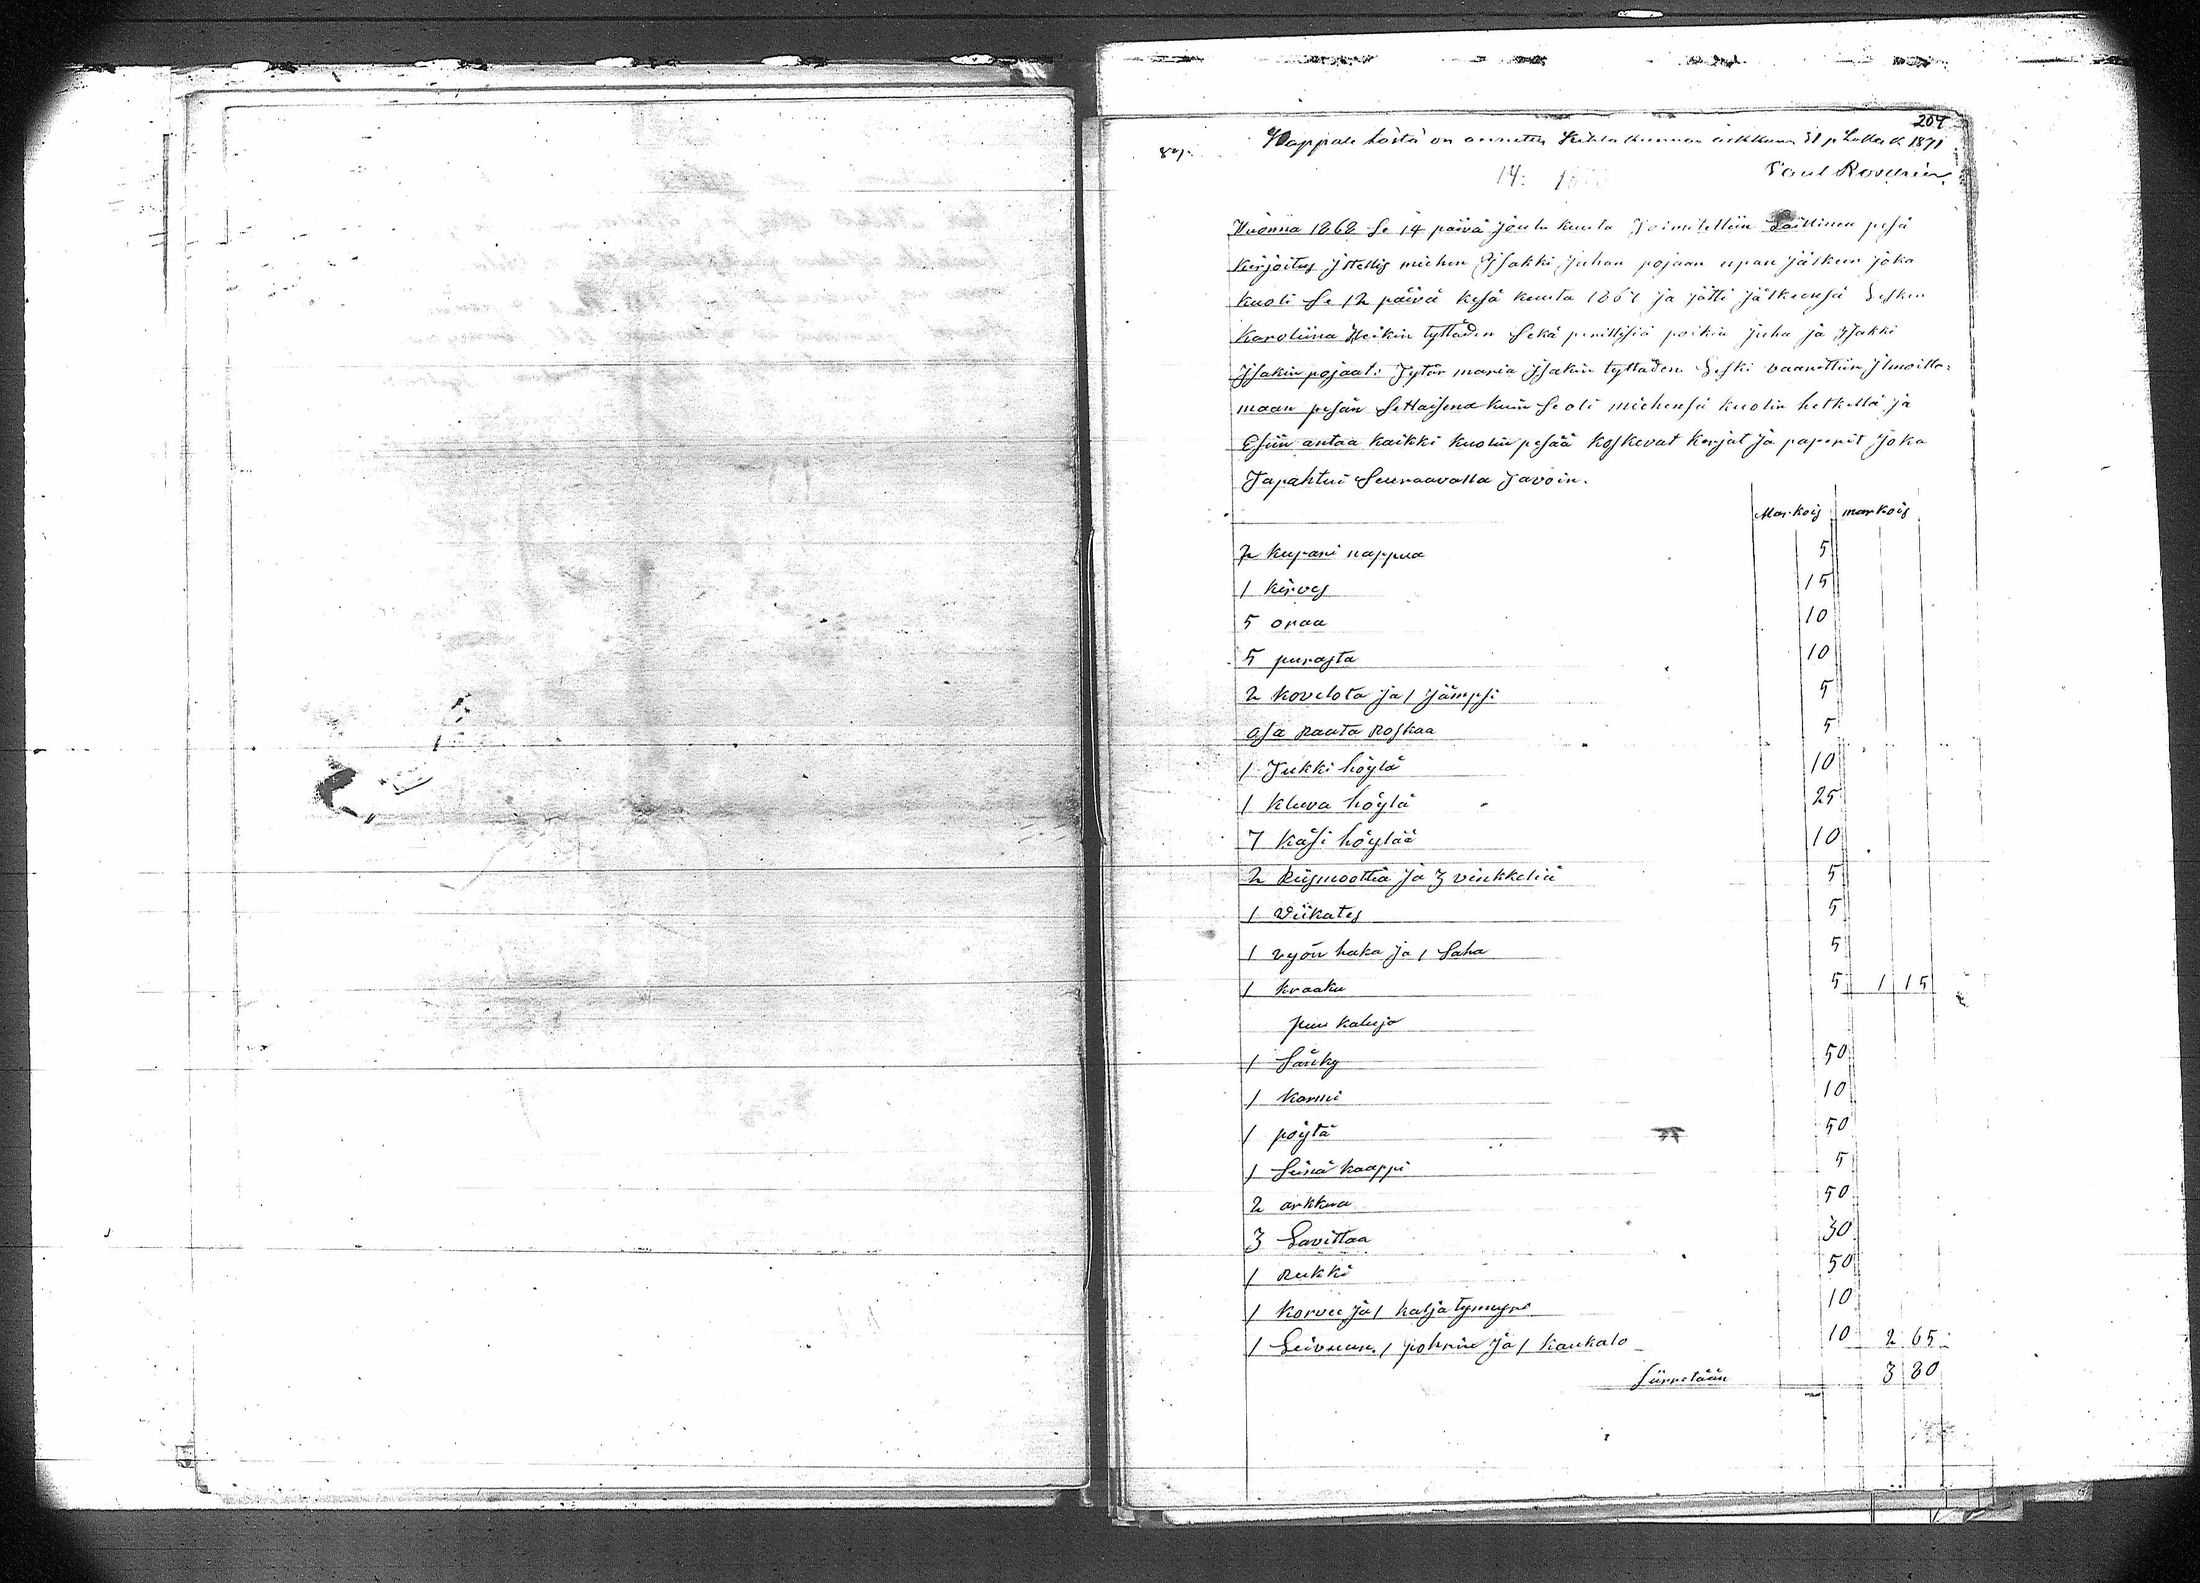 204
Kappale tästä on annettu Kihlakunnan arkkuun 31 p Lokak. 1871
84.
14:
Wuonna 1868 Se 14 päivä joulu kuuta Joimitettiin Laillinen pesä
kirjoitus Jttellis miehen Jsakki Juhan pojaan upan jälkeen joka
kuoli Se 12 päivä kesä kuuta 1867 ja jätti jälkeensä Lesken
Karoliina Heikin tyttäden Sekä perillisiä poikia Juha ja Jsakki
Jsakin pojaat: Jytär maria Jsakin tyttäden Leski vaanottiin Jlmoitta=
maan pesän Sellaisena kuin Se oli miehensä kuolin hetkellä ja
Esiin antaa kaikki kuolin pesää koskevat kirjat ja paperit Joka
Japahtui Seuraavalla Javoin.
Markois markois
2 kupari nappua 5
1 kirves 15
5 oraa 10
5 purasta 10
2 kovelota ja 1 Jämpsi 5
osa Rauta Roskaa 5
1 Jukki höylä 10
1 kluva höylä 25
7 käsi höylää 10
2 Riismoottia ja 3 vinkkeliä 5
1 viikates 5
1 vyön haka ja 1 Saha 5
1 kraaku 5 1 15
puu kaluja
1 Sänky 50
1 karmi 10
1 pöytä 50
1 Seinä kaappi 5
2 arkkua 50
3 Lavittaa 30
1 Rukki 50
1 korvee ja 1 kalja tynnyri 10
1 Leivuun, 1 pohrin ja 1 kaukalo 10 2 65
Siirretään 3 80